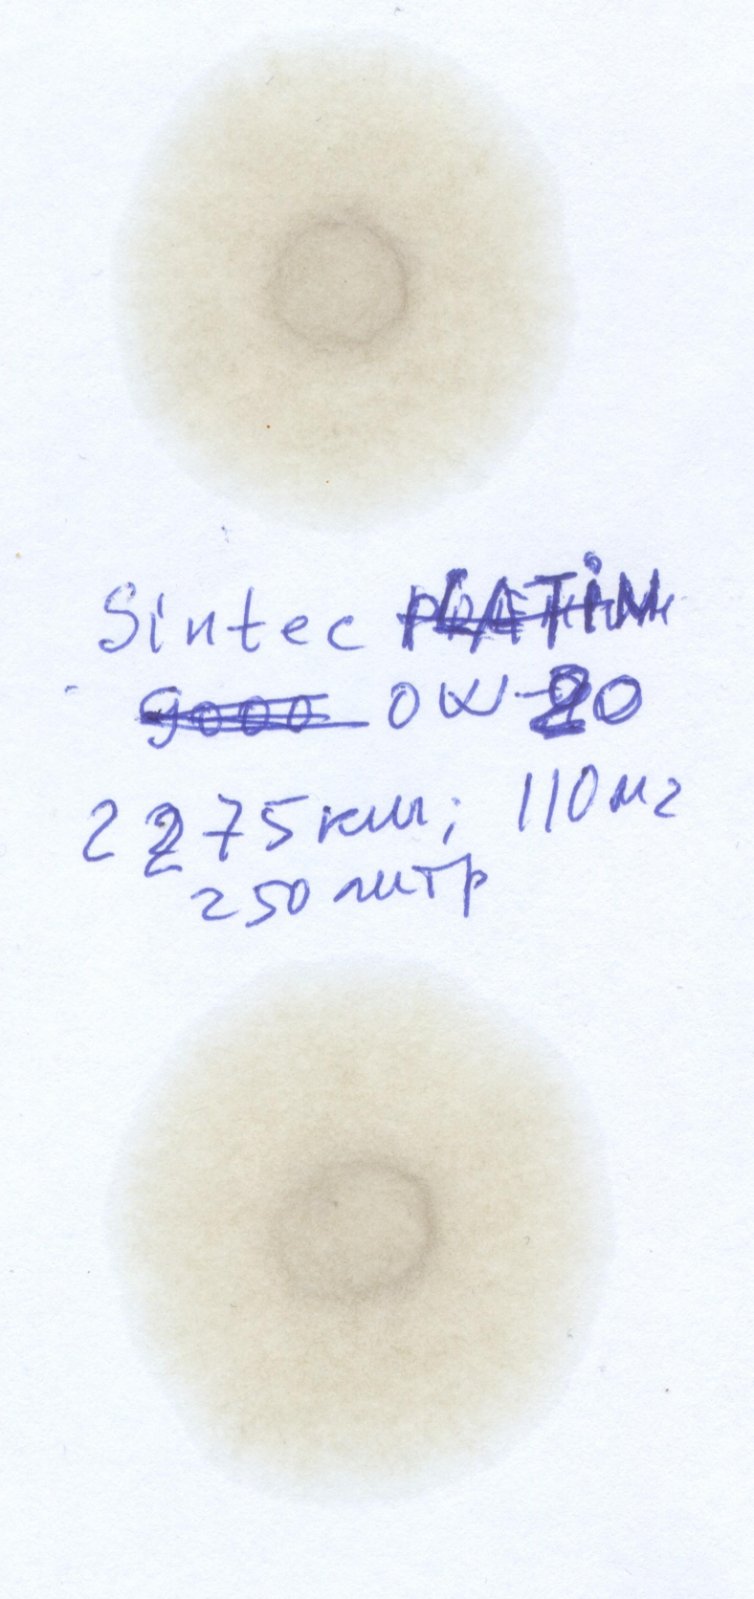 Sintec PLATiN
9000 0W-20
2275 км; 110 мг
250 литр